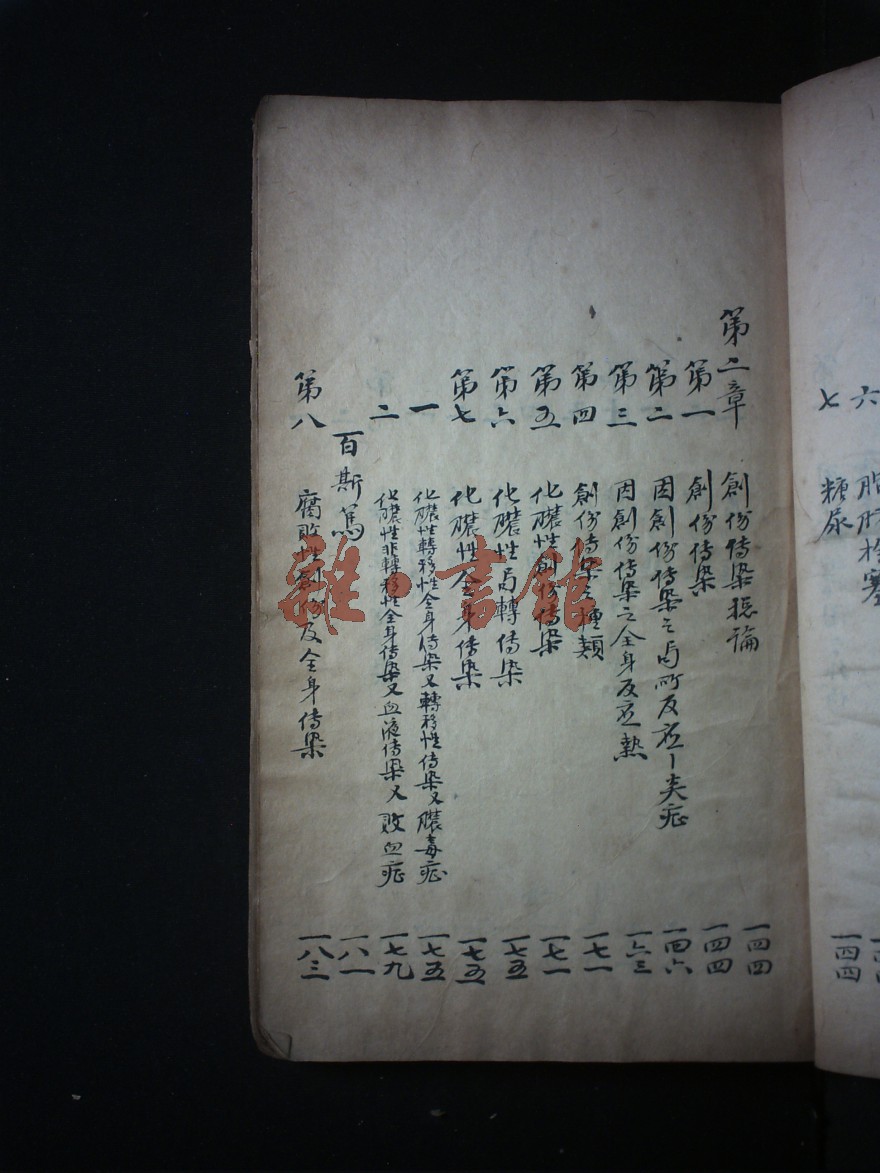 六 脂肪栓塞 一四四
七 糖尿 一四四
第二章 創份傳染総論 一四四
第一 創份傳染 一四四
第二 因創份傳染之局所反應ー炎症 一四六
第三 因創份傳染之全身反應熱 一六三
第四 創份傳染之種類 一七一
第五 化膿性創份傳染 一七一
第六 化膿性局轉傳染 一七五
第七 化膿性全身傳染 一七五
一 化膿性轉移性全身傳染又轉移性傳染又膿毒症 一七五
二 化膿性非轉移性全身傳染又血液傳染又敗血症 一七九
百斯篤 一八一
第八 腐敗性創份及全身傳染 一八三
雜·書館